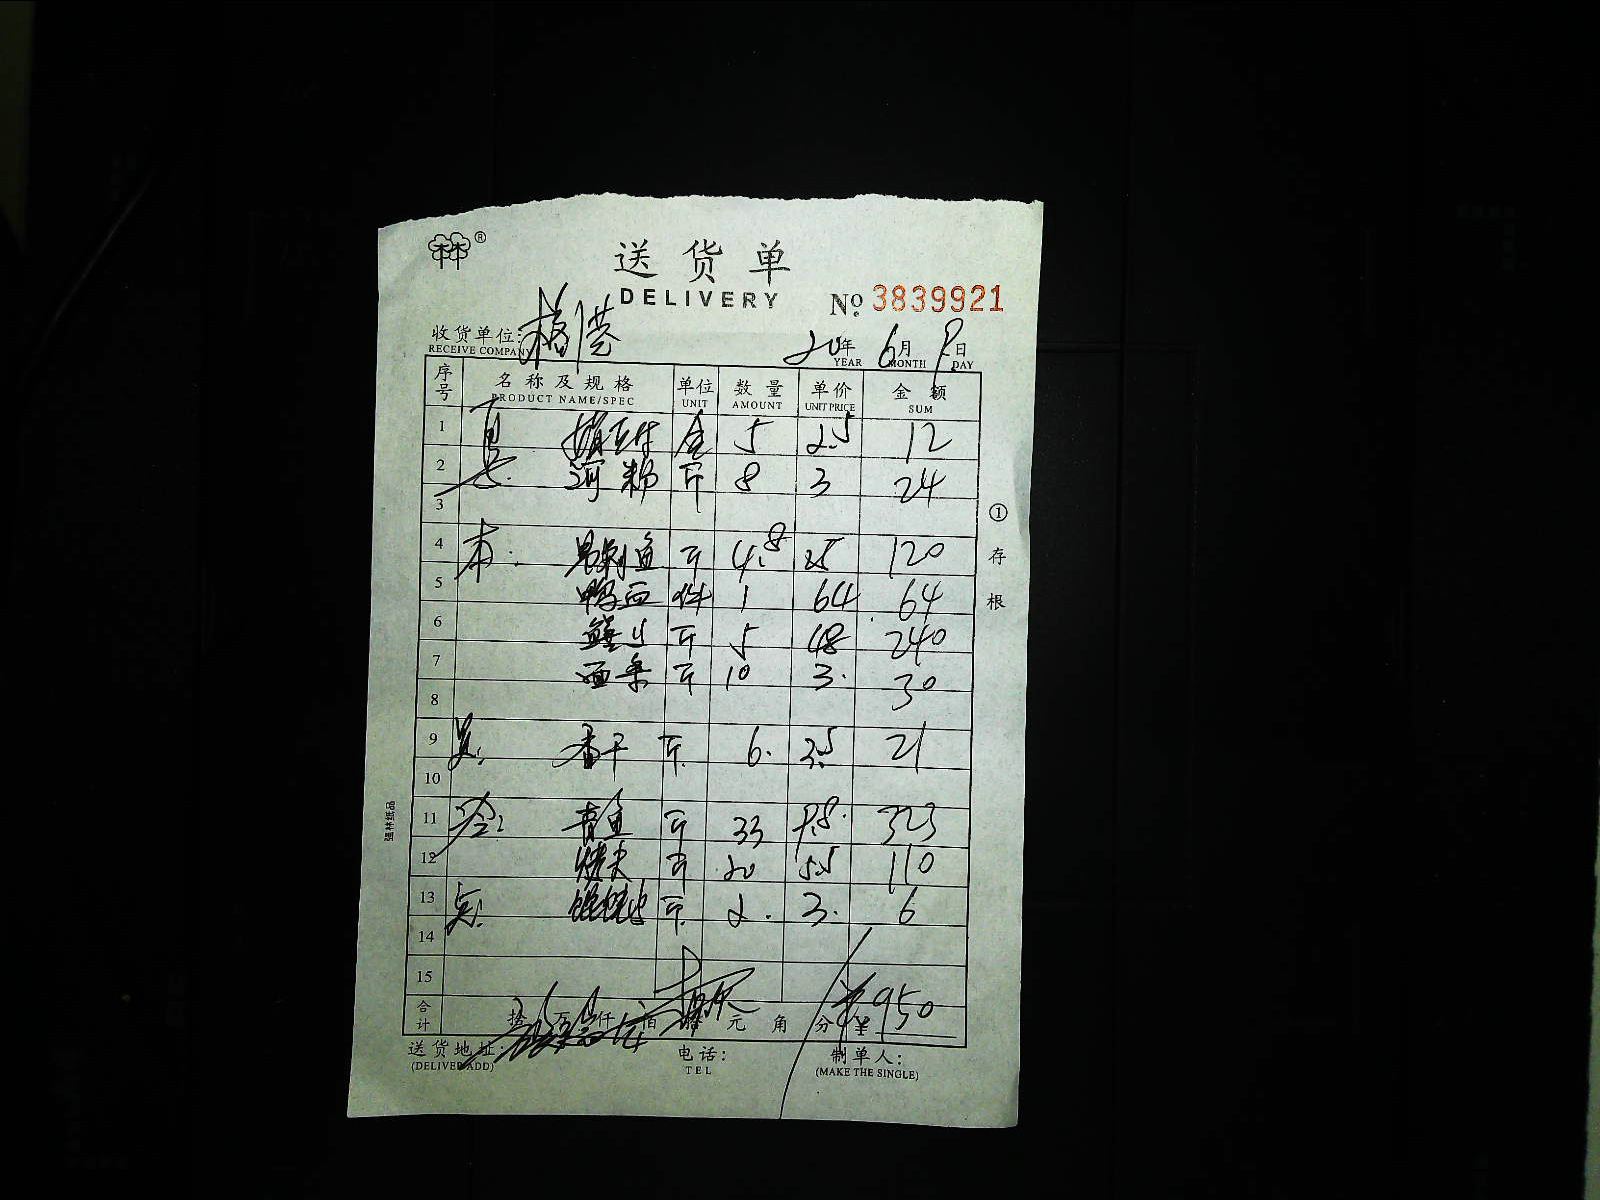 ®
送货单
DELIVERY
No. 3839921
收货单位:
RECEIVE COMPANY
20年 6月 9日
YEAR MONTH DAY
序号 名称及规格 单位 数量 单价 金额
PRODUCT NAME/SPEC UNIT AMOUNT UNIT PRICE SUM
1 5 2.5 12
2 河粉 斤 8 3 24
3
4 斤 4.8 25 120
5 鸭血 件 1 64 64
6 斤 5 48 240
7 斤 10 3. 30
8
9 香干 斤 6. 3.5 21
10
11 青鱼 斤 33 9.8 323
12 斤 20 5.5 110
13 斤 2. 3. 6
14
15
合计 拾 万 仟 佰 拾 元 角 分 ¥ 950
送货地址: 电话: 制单人:
(DELIVED ADD) TEL (MAKE THE SINGLE)
①存根
强林纸品